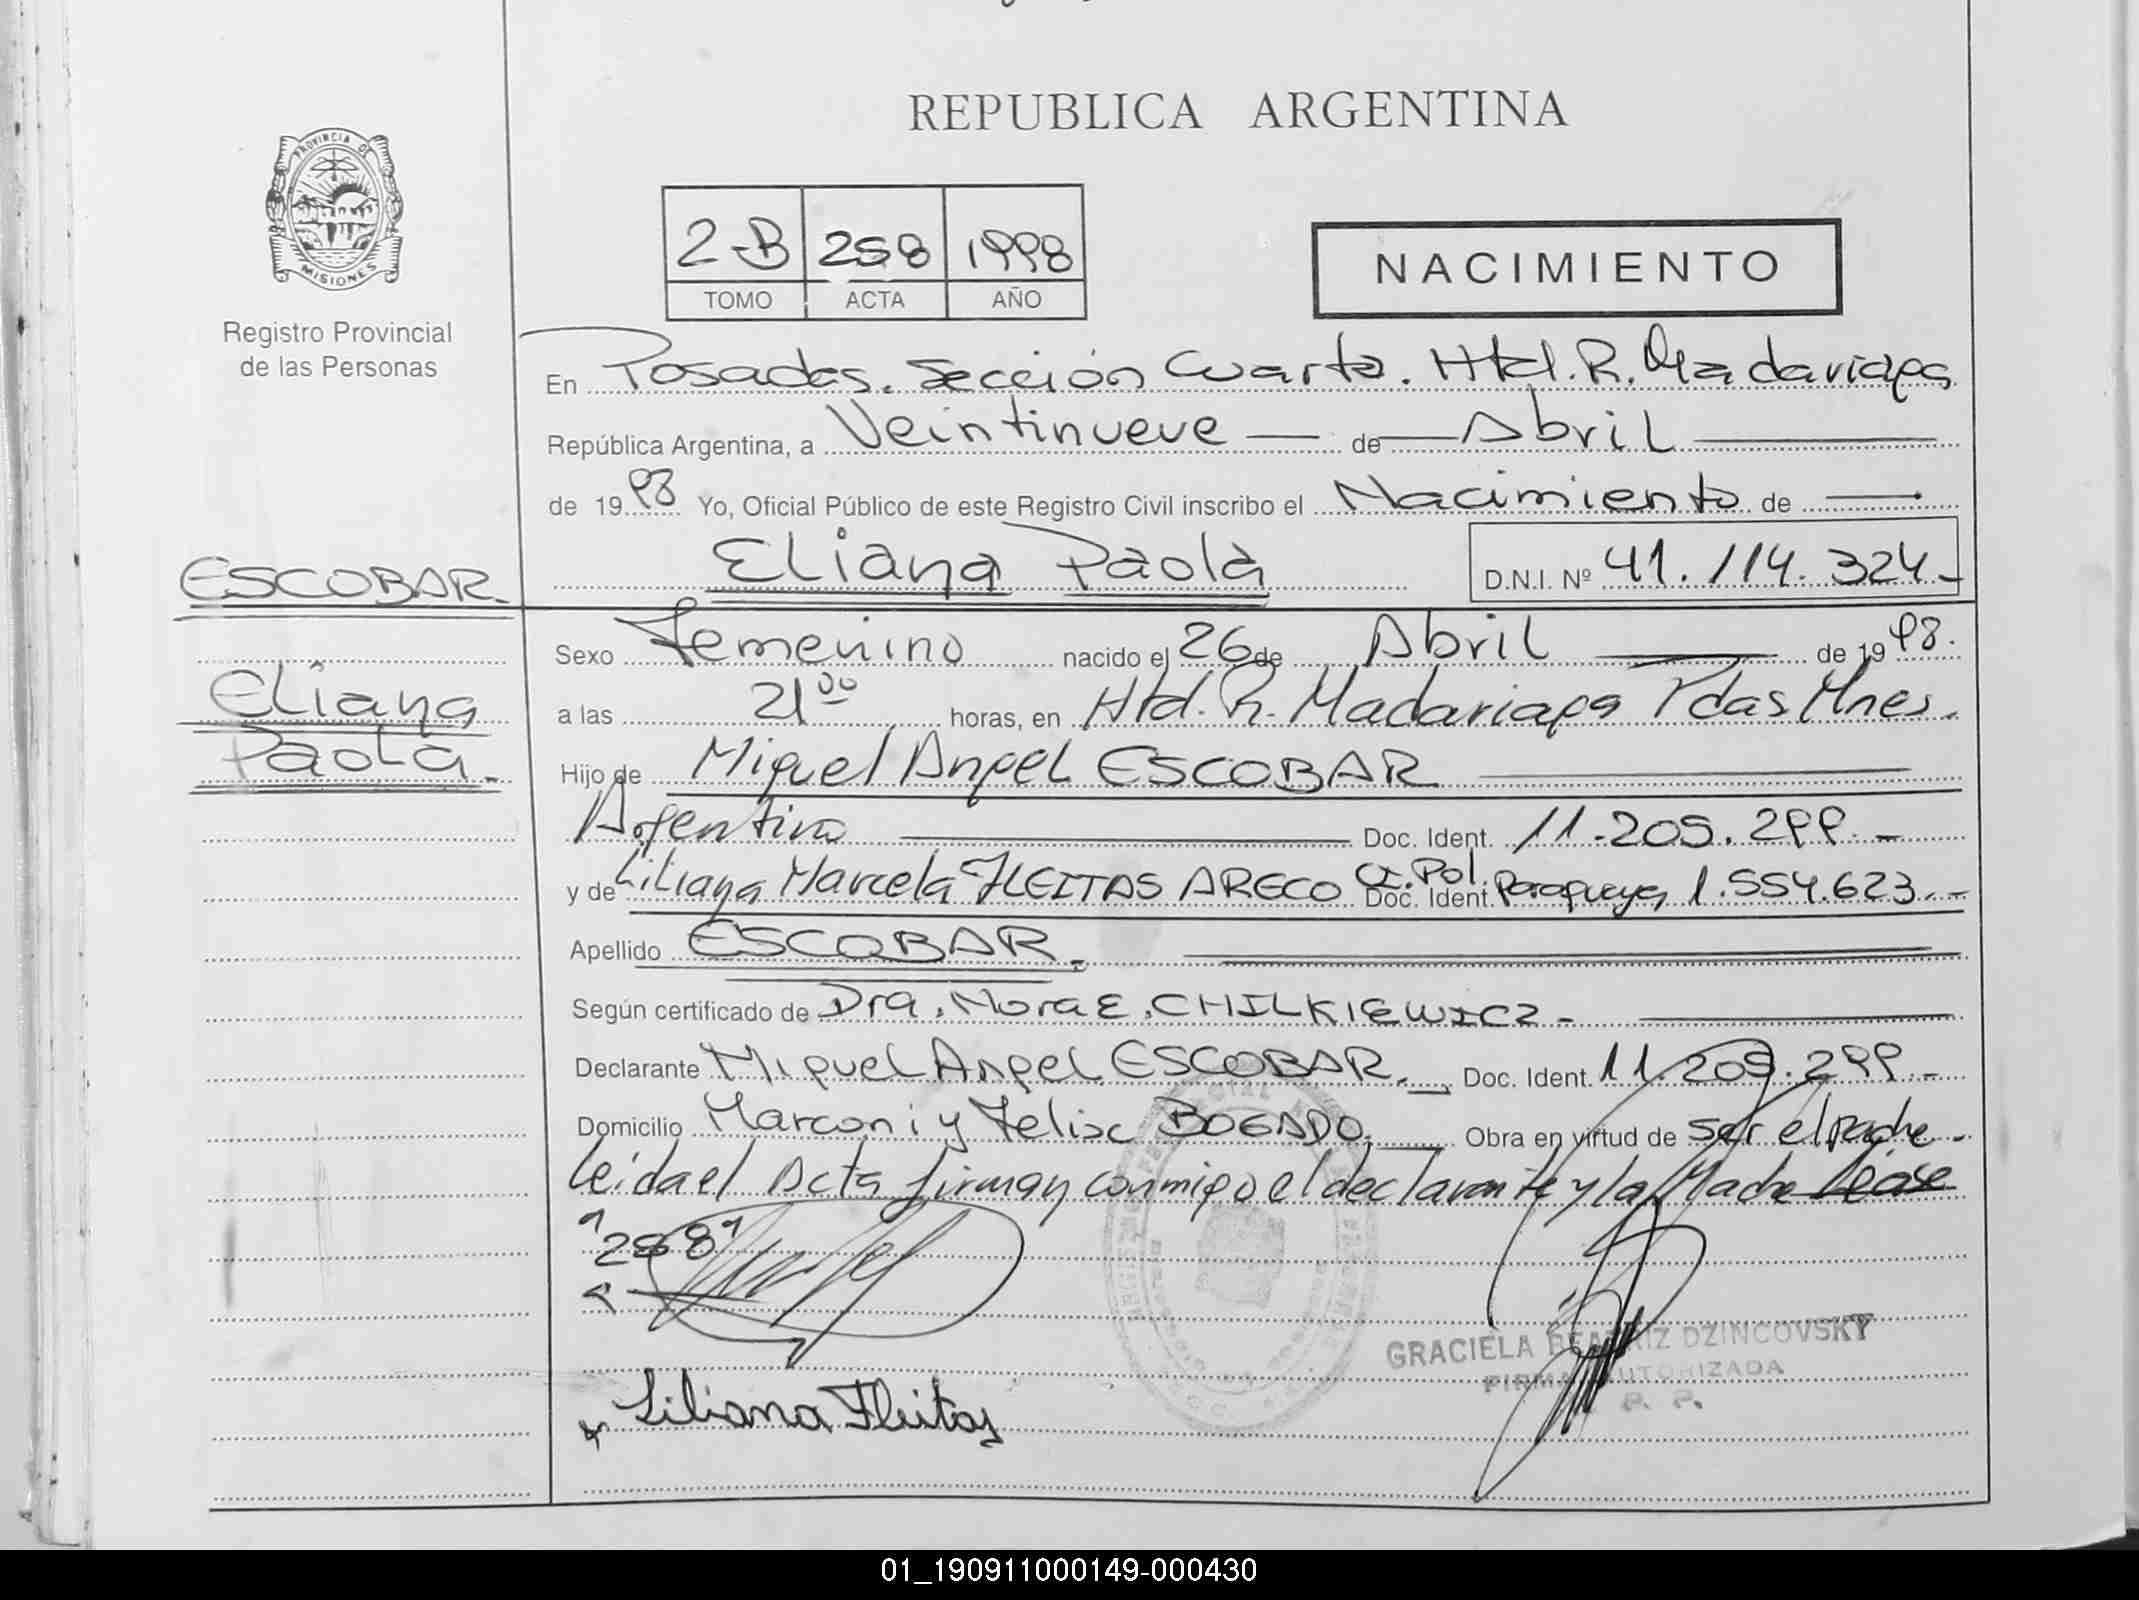 REPUBLICA ARGENTINA
PROVINCIA DE
MISIONES
Registro Provincial
de las Personas
2-B 258 1998
TOMO ACTA AÑO
NACIMIENTO
En Posadas. Sección Cuarta. Htal. R. Madariaga
República Argentina, a Veintinueve de Abril
de 1998 Yo, Oficial Público de este Registro Civil inscribo el Nacimiento de
Eliana Paola D.N.I. Nº 41.114.324-
ESCOBAR.
Eliana
Paola.-
Sexo Femenino nacido el 26 de Abril de 1998.
a las 21⁰⁰ horas, en Htal. R. Madariaga Pdas Mnes.
Hijo de Miguel Angel ESCOBAR
Argentino Doc. Ident. 11.205.299.-
y de Liliana Marcela FLEITAS ARECO Doc. Ident. CI. Pol. Paraguaya 1.554.623.-
Apellido ESCOBAR.
Según certificado de Dra. Nora E. CHILKIEWICZ-
Declarante Miguel Angel ESCOBAR.- Doc. Ident. 11.205.299.-
Domicilio Marconi y Felix BOGADO.- Obra en virtud de ser el padre.-
Leida el Acta firman conmigo el declarante y la Madre Léase
"258"
GRACIELA BEATRIZ DZINCOVSKY
FIRMA AUTORIZADA
R. P.
Liliana Fleitas
01_190911000149-000430